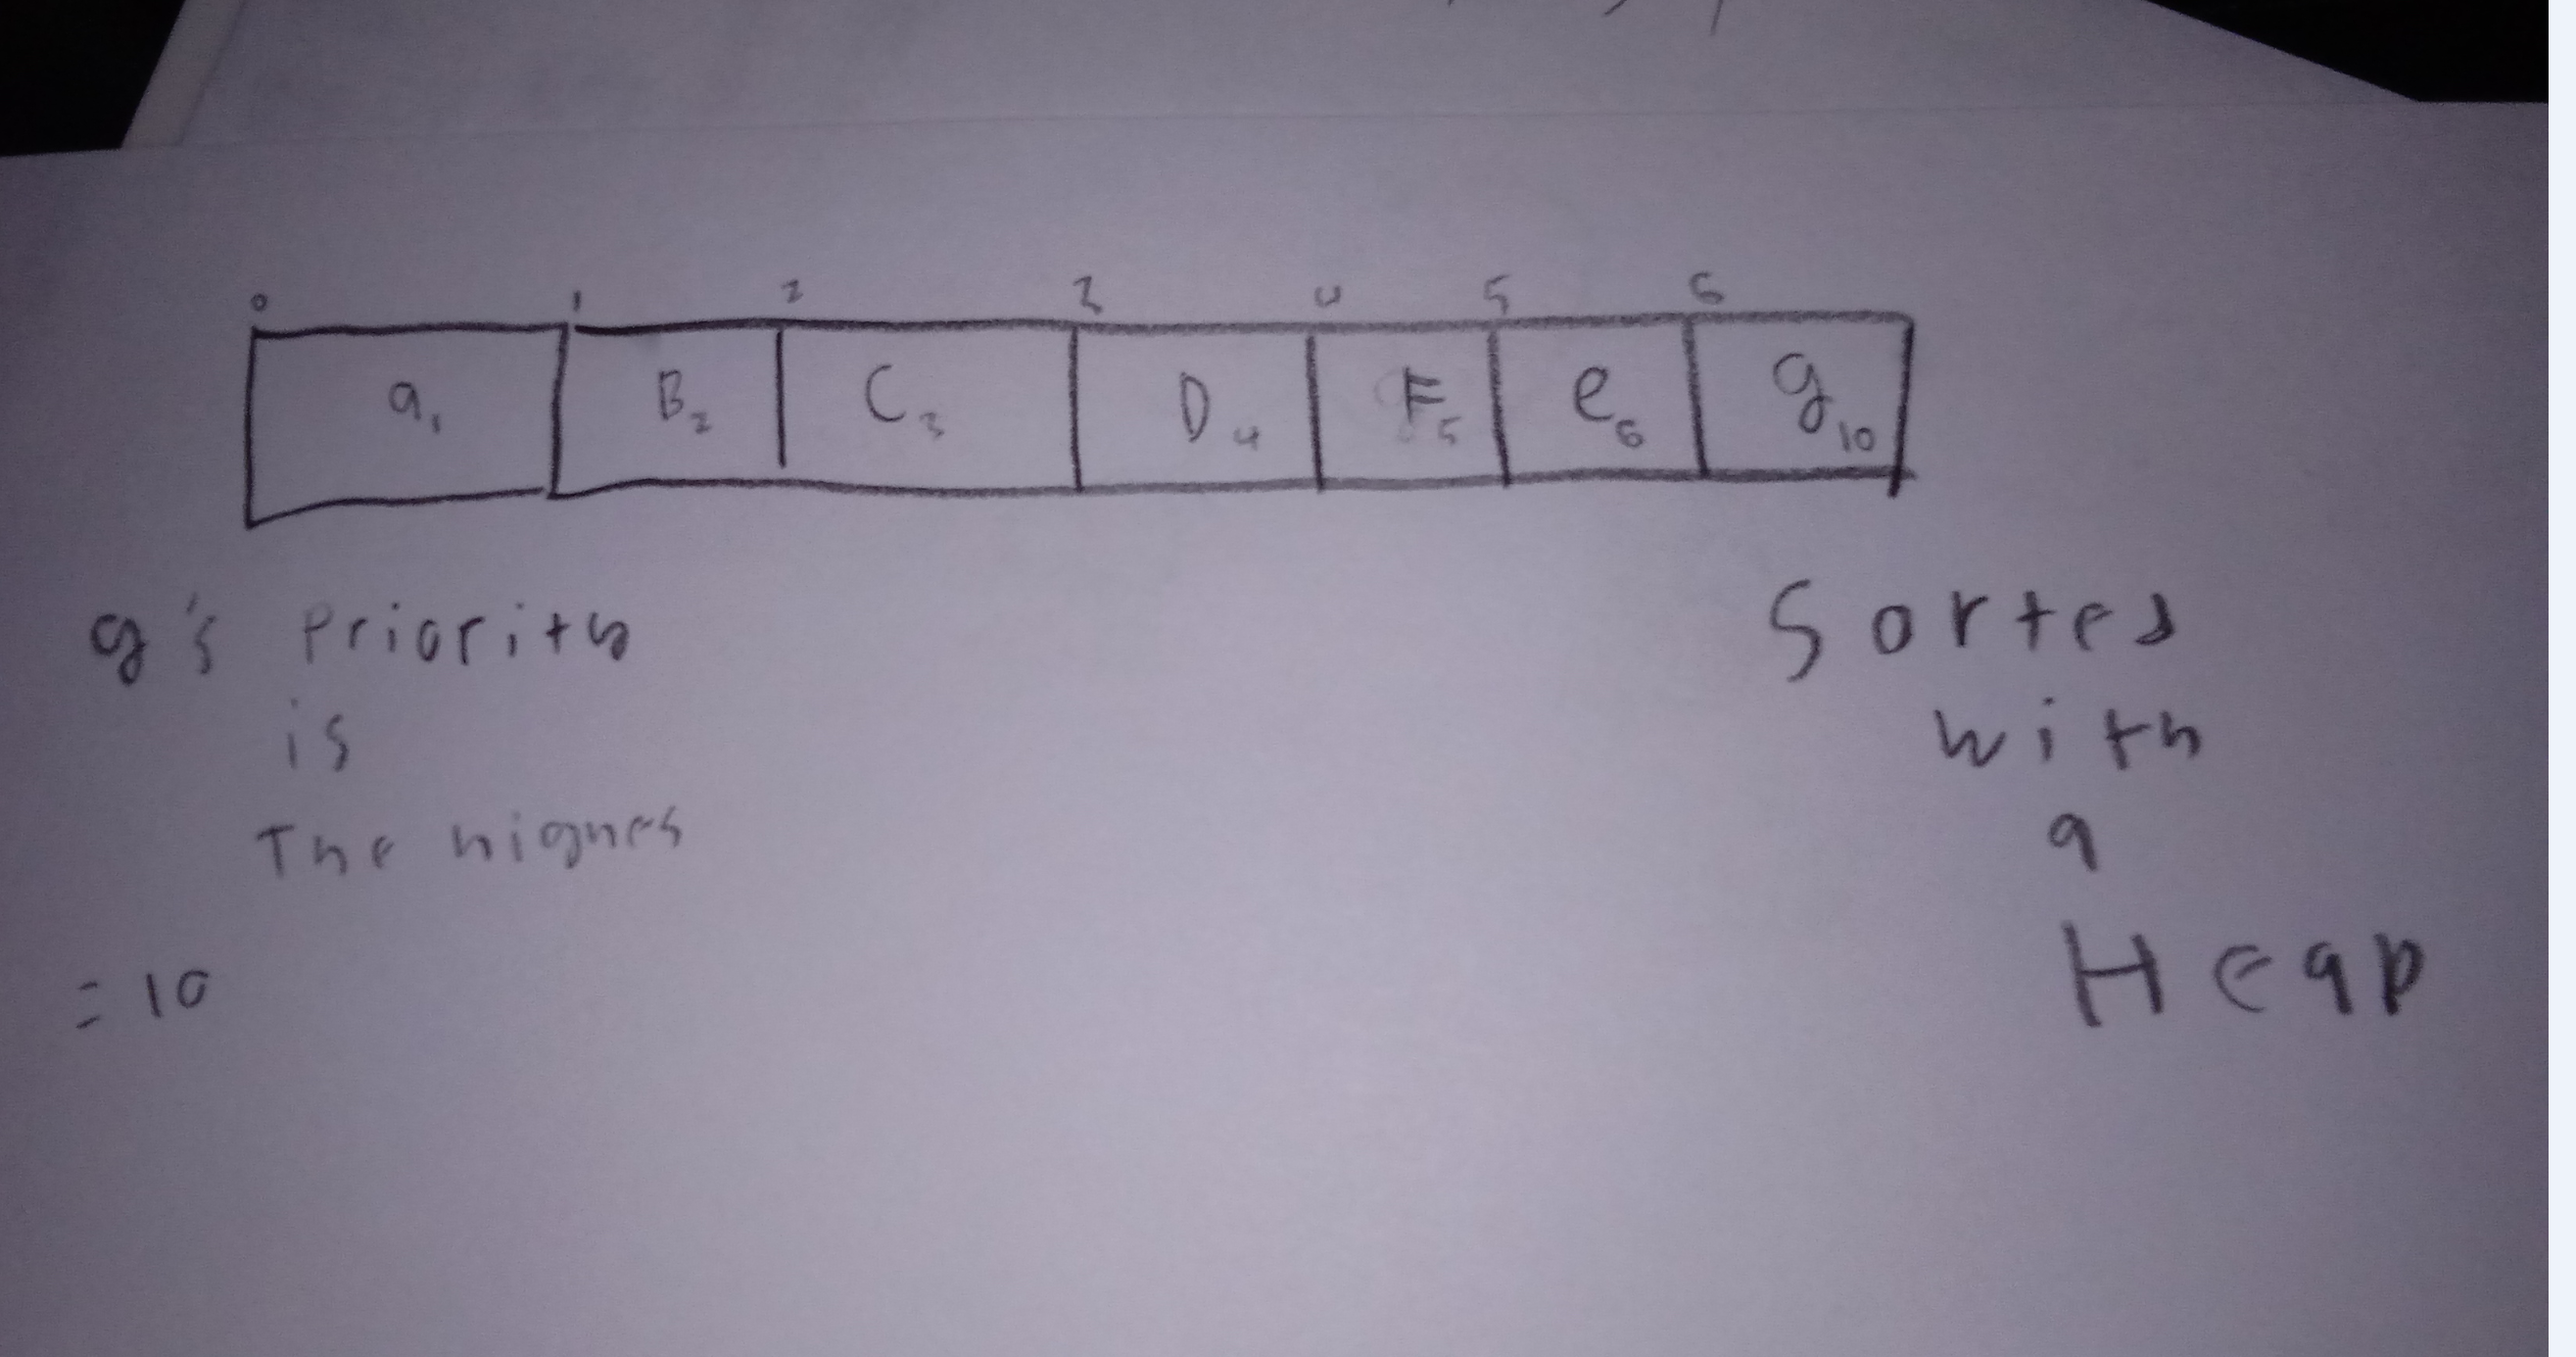 0 1 2 3 4 5 6
a1 B2 C3 D4 F5 e6 g10
g's Priority
is
The highes
= 10
Sorted
with
a
Heap